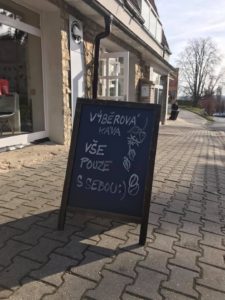 VÝBĚROVÁ
KÁVA
VŠE
POUZE
S SEBOU:)